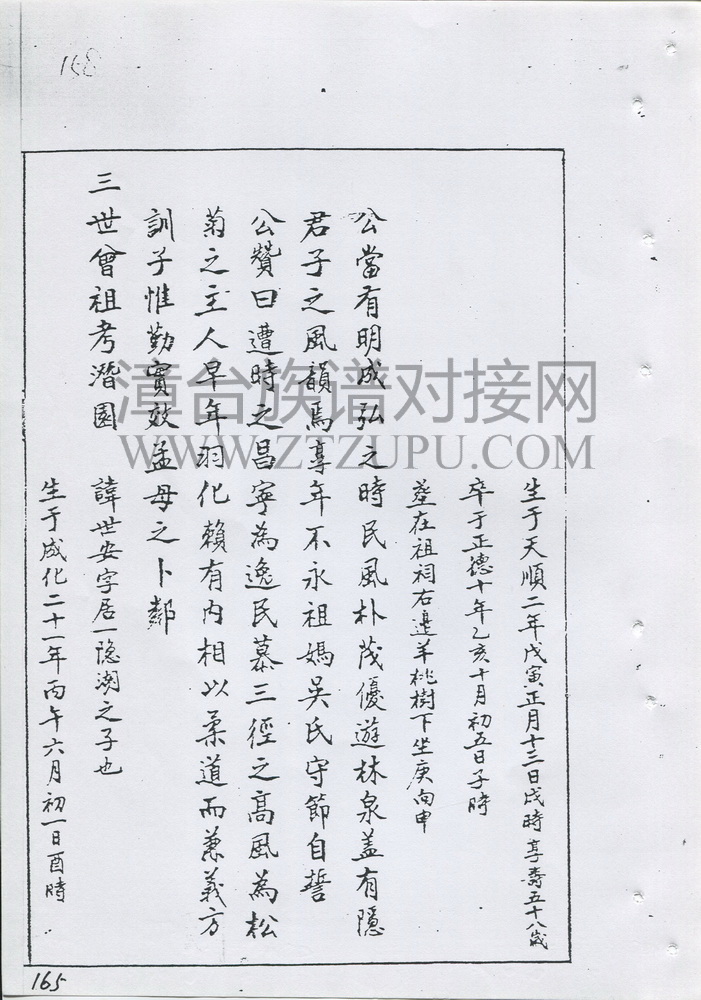 168
生于天順二年戊寅正月十三日戌時享壽五十八歲
卒于正德十年乙亥十月初五日子時
葬在祖祠右邊羊桃樹下坐庚向申
公當有明成弘之時民風朴茂優遊林泉盖有隱
君子之風韻焉享年不永祖媽吳氏守節自誓
公贊曰遭時之昌寧為逸民慕三徑之高風為松
菊之主人早年羽化賴有内相以柔道而兼義方
訓子惟勤實效孟母之卜鄰
三世曾祖考潛園
諱世安字居一隐湖之子也
生于成化二十一年丙午六月初一日酉時
漳台族谱对接网
WWW.ZTZUPU.COM
165